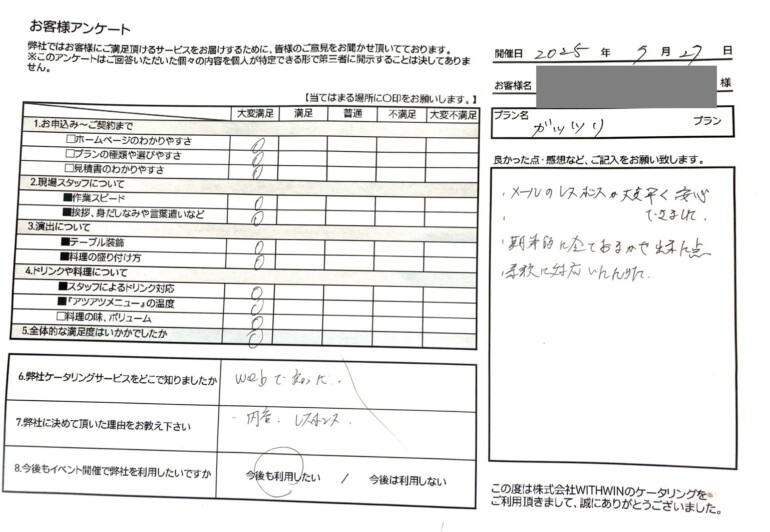 お客様アンケート
弊社ではお客様にご満足頂けるサービスをお届けするために、皆様のご意見をお聞かせ頂いてております。
※このアンケートはご回答いただいた個々の内容を個人が特定できる形で第三者に開示することは決してありま
せん。
【当てはまる場所に〇印をお願いします。】
大変満足 満足 普通 不満足 大変不満足
1.お申込み～ご契約まで
□ホームページのわかりやすさ
□プランの種類や選びやすさ
□見積書のわかりやすさ
2.現場スタッフについて
■作業スピード
■挨拶、身だしなみや言葉遣いなど
3.演出について
■テーブル装飾
■料理の盛り付け方
4.ドリンクや料理について
■スタッフによるドリンク対応
■『アツアツメニュー』の温度
□料理の味、ボリューム
5.全体的な満足度はいかがでしたか
6.弊社ケータリングサービスをどこで知りましたか
webで知った
7.弊社に決めて頂いた理由をお教え下さい
内容、レスポンス
8.今後もイベント開催で弊社を利用したいですか
今後も利用したい / 今後は利用しない
開催日 2025 年 9 月 27 日
お客様名 様
プラン名 ガッツリ プラン
良かった点・感想など、ご記入をお願い致します。
・メールのレスポンスが大変早く安心
できました.
・柔軟に対応
この度は株式会社WITHWINのケータリングを
ご利用頂きまして、誠にありがとうございました。